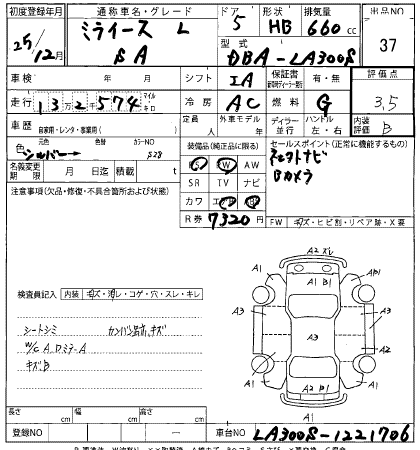 初度登録年月 通称車名・グレード ドア 形状 排気量 出品NO
25/12月 ミライース L SA 5 HB 660 cc 37
型式 DBA-LA300S
車検 年 月 シフト IA 保証書 有・無 評価点
走行 132千574 マイル キロ 冷房 AC 燃料 G 3.5
車歴 自家用・レンタ・事業用( ) 定員 人 外車モデル 年 ディーラー 並行 ハンドル 左・右 内装評価 B
色 元色 シルバー 色替 カラーNO S28
装備品(純正品に限る)
セールスポイント(正常に機能するもの)
PS PW AW ナビ
Bカメラ
SR TV ナビ
カワ
名義変更期限 月 日迄 積載 t
R券 7320 円
注意事項(欠品・修復・不具合箇所および状態)
FW キズ・ヒビ割・リペア跡・X要
検査員記入 内装 キズ・汚レ・コゲ・穴・スレ・キレ
シートシミ キズ
W/C A DミラーA
キズB
A2 スレ
A1 A1 B1 A1
A3 A3 A3
A2
A1 A2 B1 A1
長さ cm 幅 cm 高さ cm
登録NO 車台NO LA300S-1221706